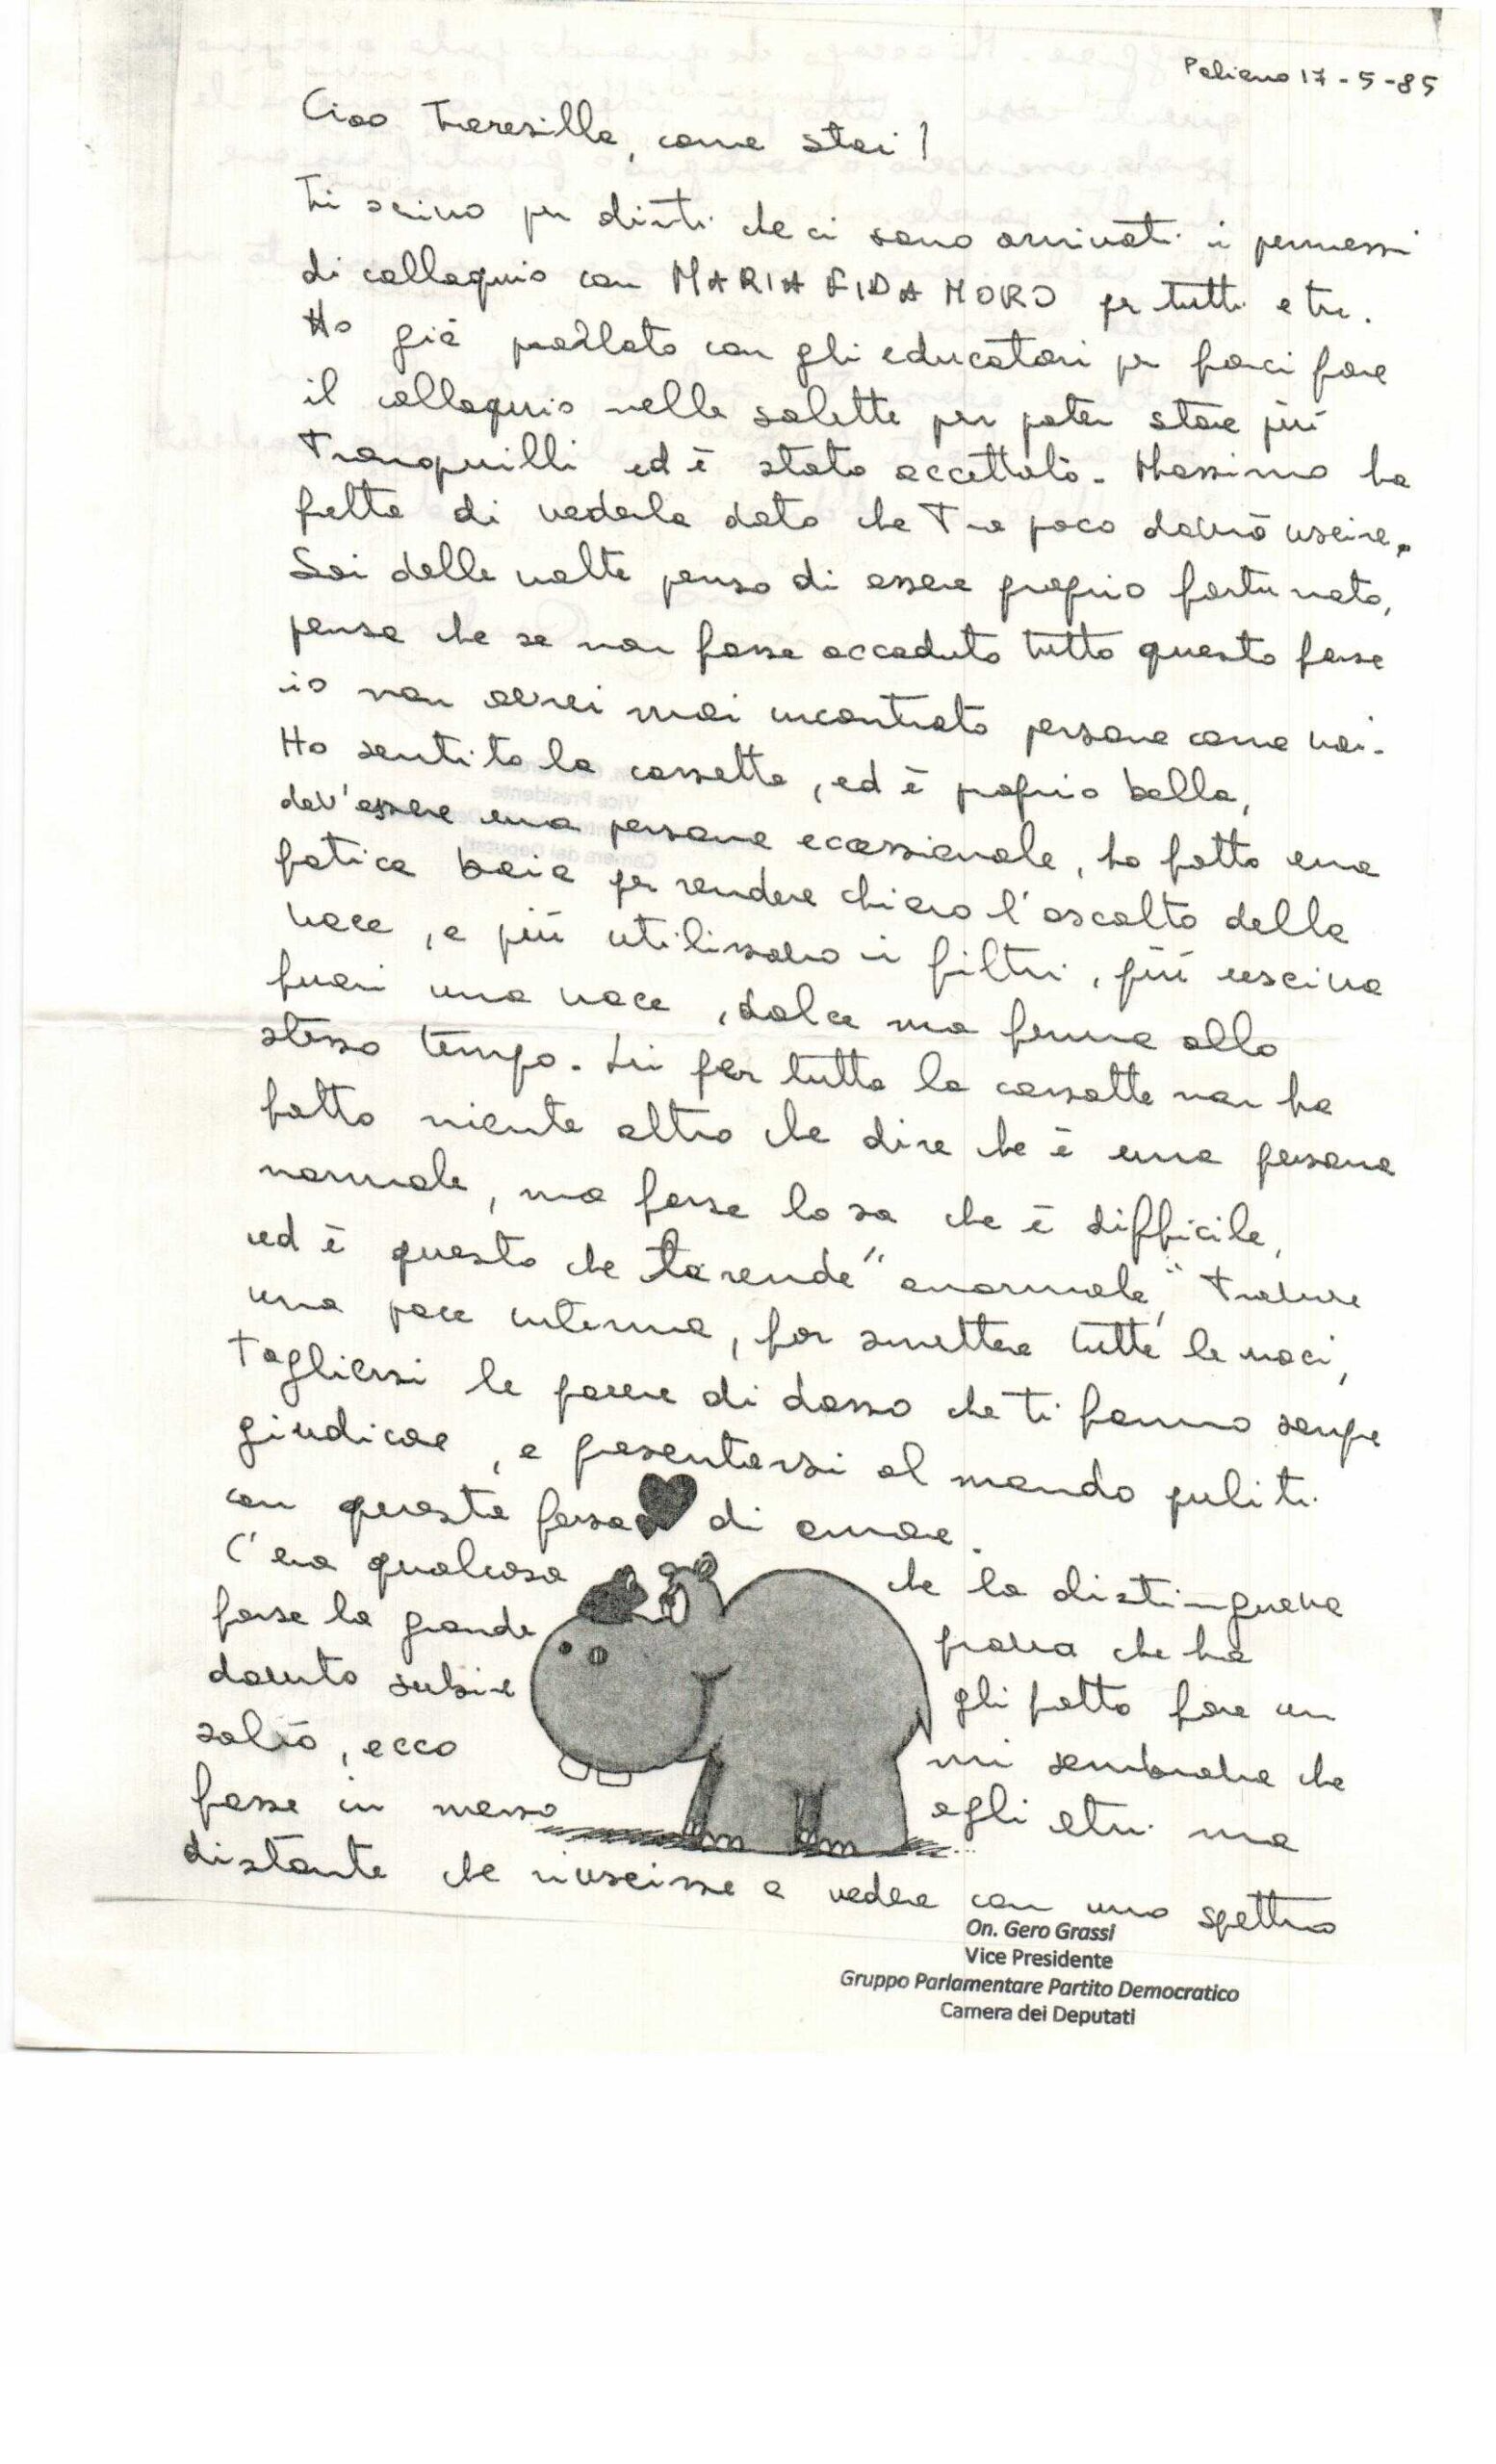 Paliano 17-5-85
Ciao Teresilla, come stai!
Ti scrivo per dirti che ci sono arrivati i permessi
di colloquio con MARIA FIDA MORO per tutti e tre.
Ho già parlato con gli educatori per farci fare
il colloquio nella saletta per poter stare più
Tranquilli ed è stato accettato. Massimo ha
fretta di vederla dato che Tra poco dovrà uscire.
Sai delle volte penso di essere proprio fortunato,
penso che se non fosse accaduto tutto questo forse
io non avrei mai incontrato persone come voi.
Ho sentito la cassetta, ed è proprio bella,
dev'essere una persona eccessionale, ho fatto una
fatica boia per rendere chiaro l'ascolto della
voce, e più utilissavo i filtri, più usciva
fuori una voce, dolce ma ferma allo
stesso tempo. Lei per tutta la cassetta non ha
fatto niente altro che dire che è una persona
normale, ma forse lo sa che è difficile,
ed è questo che la rende "anormale," Trovare
una pace interna, far smettere tutte le voci,
Togliersi le paure di dosso che ti fanno sempre
giudicare, e presentarsi al mondo puliti
con questa forsa di amore.
C'era qualcosa che la distingueva
forse la grande prova che ha
dovuto subire gli fatto fare un
salto, ecco mi sembrava che
fosse in messo agli altri ma
distante che riuscisse a vedere con uno spettro
On. Gero Grassi
Vice Presidente
Gruppo Parlamentare Partito Democratico
Camera dei Deputati